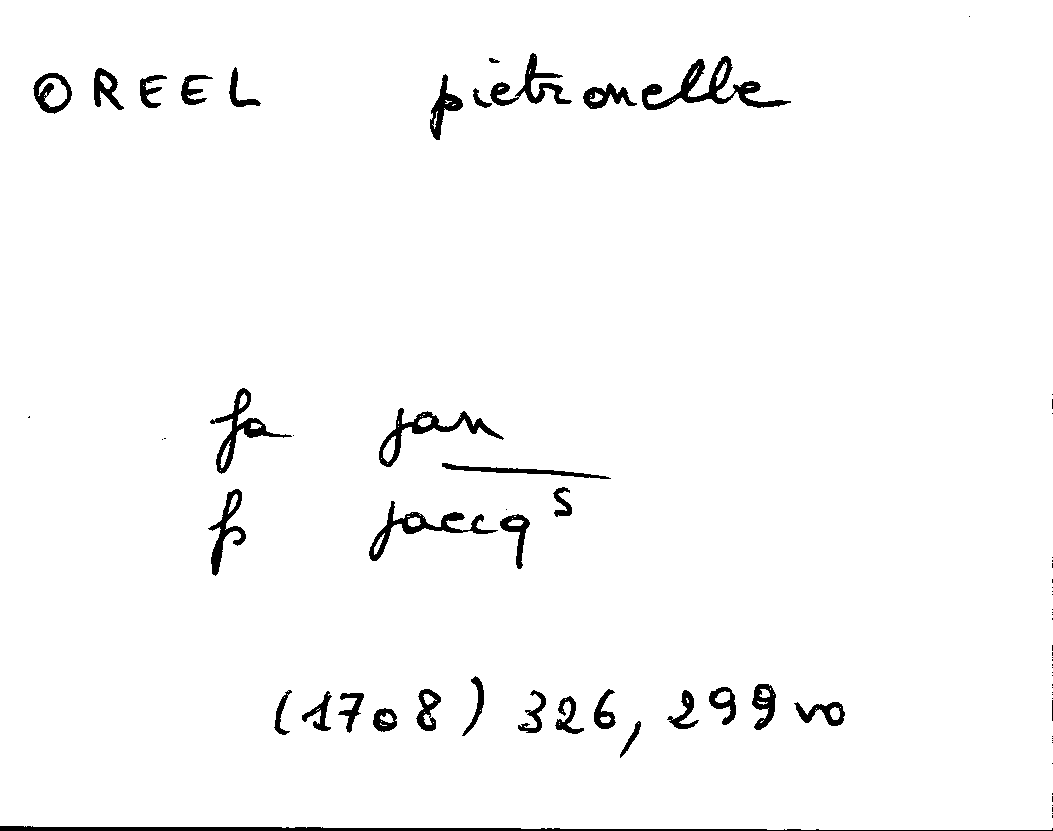 OREEL pietronelle
fa jan
fs jaccqs
(1708) 326, 299 vo